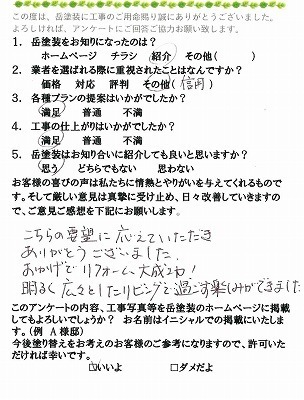 この度は、岳塗装に工事のご用命賜り誠にありがとうございました。
よろしければ、アンケートにご回答ご協力お願い致します。
1．岳塗装をお知りになったのは？
ホームページ　チラシ　紹介　その他（　　　）
2．業者を選ばれる際に重視されたことはなんですか？
価格　対応　評判　その他（信用）
3．各種プランの提案はいかがでしたか？
満足　普通　不満
4．工事の仕上がりはいかがでしたか？
満足　普通　不満
5．岳塗装はお知り合いに紹介しても良いと思いますか？
思う　どちらでもない　思わない
お客様の喜びの声は私たちに情熱とやりがいを与えてくれるものです。そして厳しい意見は真摯に受け止め、日々改善していきますので、ご意見ご感想を下記にお願いします。
こちらの要望に応えていただき
ありがとうございました。
おかげで リフォーム大成功！
明るく広々としたリビングで過ごす楽しみができました
このアンケートの内容、工事写真等を岳塗装のホームページに掲載
してもよろしいでしょうか？　お名前はイニシャルでの掲載にいたしま
す。（例　A 様邸）
今後塗り替えをお考えのお客様のご参考になりますので、許可いた
だければ幸いです。
☑いいよ　□ダメだよ